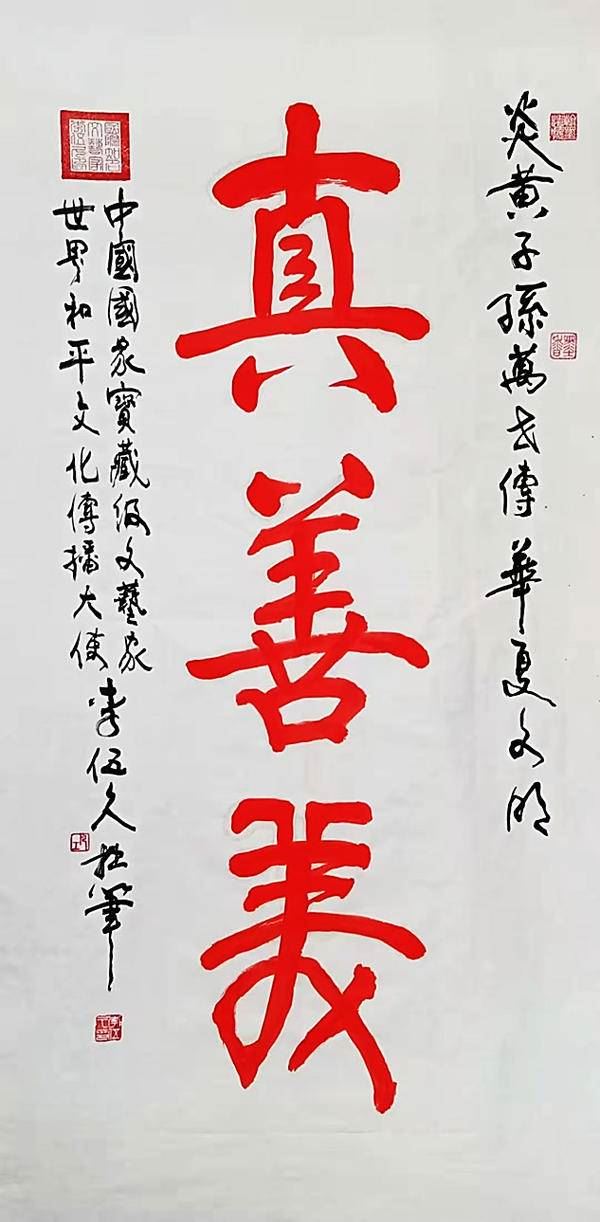 炎黄子孫萬世傳華夏文明
真善美
中國國家寶藏级文藝家
世界和平文化傳播大使
李伍久拙筆